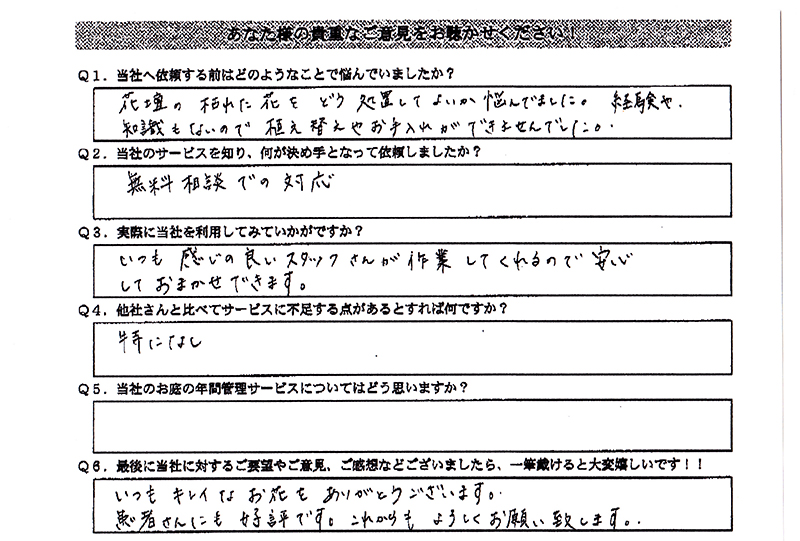 あなた様の貴重なご意見をお聴かせください！
Q1．当社へ依頼する前はどのようなことで悩んでいましたか？
花壇の枯れた花をどう処置してよいか悩んでました。経験や、
知識もないので植え替えやお手入れができませんでした。
Q2．当社のサービスを知り、何が決め手となって依頼しましたか？
無料相談での対応
Q3．実際に当社を利用してみていかがですか？
いつも感じの良いスタッフさんが作業してくれるので安心
しておまかせできます。
Q4．他社さんと比べてサービスに不足する点があるとすれば何ですか？
特になし
Q5．当社のお庭の年間管理サービスについてはどう思いますか？
Q6．最後に当社に対するご要望やご意見、ご感想などございましたら、一筆戴けると大変嬉しいです！！
いつもキレイなお花をありがとうございます。
患者さんにも好評です。これからもよろしくお願い致します。